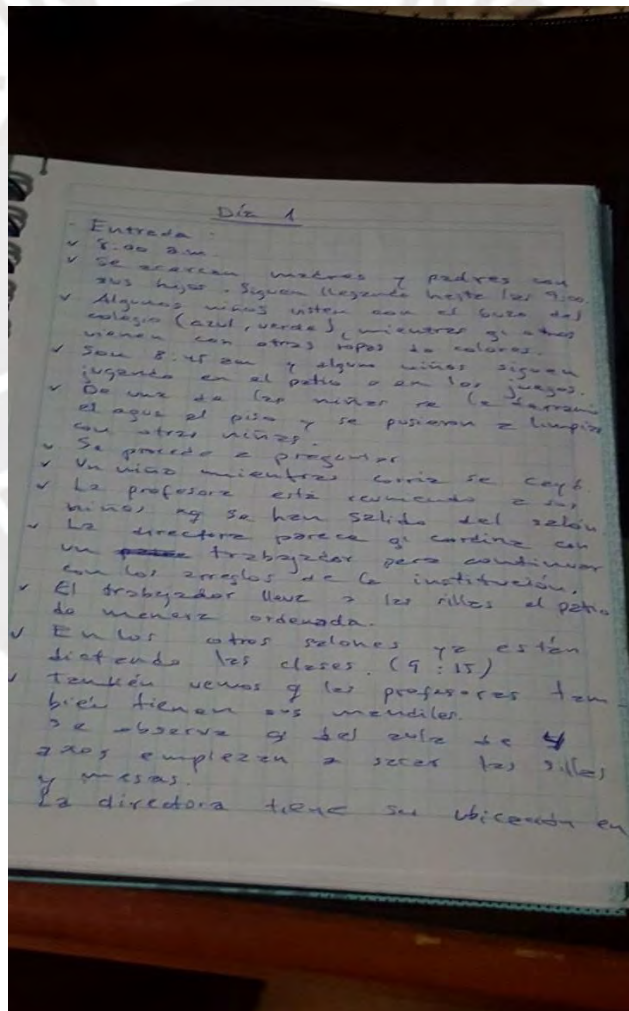 Día 1
- Entrada :
✓ 8:00 a.m.
✓ Se acercan madres y padres con
sus hijos. Siguen llegando hasta las 9:00.
✓ Algunos niños visten con el buzo del
colegio (azul, verde), mientras q' otros
vienen con otras ropas de colores.
✓ Son 8:45 am y algunos niños siguen
jugando en el patio o en los juegos.
✓ De una de las niñas se le derramó
el agua al piso y se pusieron a limpiar
con otras niñas.
✓ Se procede a preguntar
✓ Un niño mientras corría se cayó.
✓ La profesora está reuniendo a sus
niños xq se han salido del salón.
✓ La directora parece q' cordina con
un trabajador para continuar
con los arreglos de la institución.
✓ El trabajador lleva a las sillas al patio
de manera ordenada.
✓ En los otros salones ya están
dictando las clases. (9:15)
✓ También vemos q las profesoras tam-
bién tienen sus mandiles.
Se observa q del aula de 4
años empiezan a sacar las sillas
y mesas.
La directora tiene su ubicación en